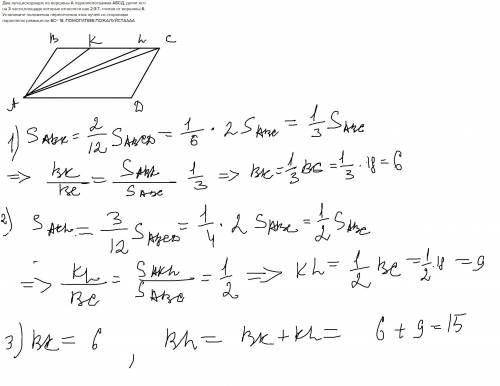 Два луча,исходящих из вершины А параллелограмма АВСД, делят его
на 3 части,площади которых относятся как 2:3:7, считая от вершины В.
Установите положение пересечения этих лучей со сторонами
параллелограмма,если ВС= 18. ПОМОГИТЕЕЕ,ПОЖАЛУЙСТАААА
B K L C
A D
1) S_ABK = 2/12 S_ABCD = 1/6 · 2 S_ABC = 1/3 S_ABC
=> BK/BC = S_ABK/S_ABC 1/3 => BK = 1/3 BC = 1/3 · 18 = 6
2) S_AKL = 3/12 S_ABCD = 1/4 · 2 S_ABC = 1/2 S_ABC
=> KL/BC = S_AKL/S_ABC = 1/2 => KL = 1/2 BC = 1/2 · 18 = 9
3) BK = 6 , BL = BK + KL = 6 + 9 = 15